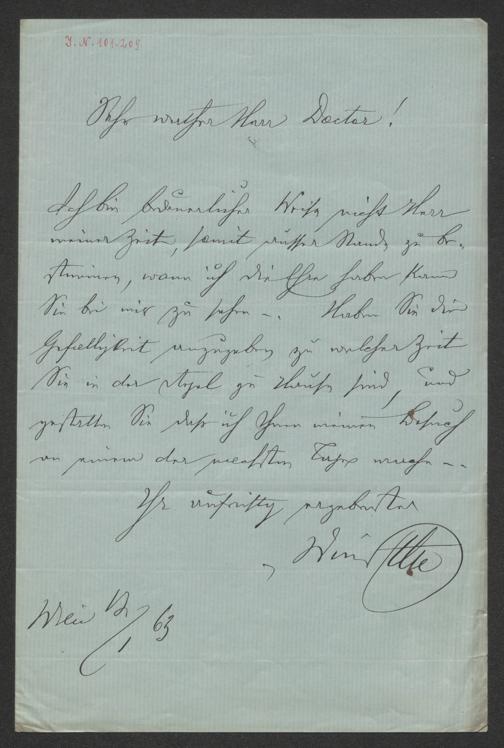 I. N. 101.209
Sehr werther Herr Doctor!
Ich bin bedauerlicher Weise nicht Herr
meiner Zeit, somit ausser Stande zu be-
stimmen, wann ich die Ehre haben kann
Sie bei mir zu sehen –. Haben Sie die
Gefaelligkeit anzugeben zu welcher Zeit
Sie in der Regel zu Hause sind, und
gestatten Sie daß ich Ihnen meinen Besuch
an einem der naechsten Tage mache –.
Ihr aufrichtig ergebenster
Wien /1 63